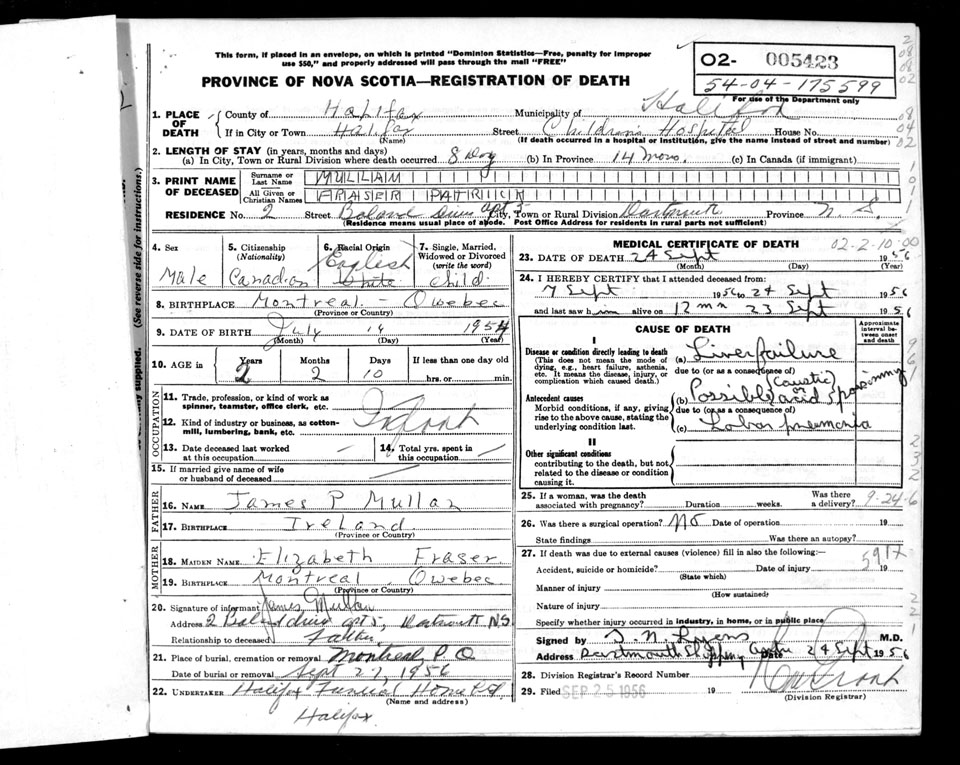 This form, if placed in an envelope, on which is printed "Dominion Statistics—Free, penalty for improper
use $50," and properly addressed will pass through the mail "FREE"
PROVINCE OF NOVA SCOTIA—REGISTRATION OF DEATH
O2- 005423
54-04-175599
For use of the Department only
1. PLACE OF DEATH
County of Halifax Municipality of Halifax
If in City or Town Halifax Street Childrens Hospital House No.
(Name) (If death occurred in a hospital or institution, give the name instead of street and number)
2. LENGTH OF STAY (in years, months and days)
(a) In City, Town or Rural Division where death occurred 8 Day (b) In Province 14 mons. (c) In Canada (if immigrant)
3. PRINT NAME OF DECEASED
Surname or Last Name MULLAN
All Given or Christian Names FRASER PATRICK
RESIDENCE No. 2 Street Boland apt 5 City, Town or Rural Division Dartmouth Province N S.
(Residence means usual place of abode. Post Office Address for residents in rural parts not sufficient)
4. Sex Male
5. Citizenship (Nationality) Canadian
6. Racial Origin English White
7. Single, Married, Widowed or Divorced (write the word) Child
8. BIRTHPLACE Montreal - Quebec
(Province or Country)
9. DATE OF BIRTH July 14 1954
(Month) (Day) (Year)
10. AGE in Years 2 Months 2 Days 10 If less than one day old hrs. or min.
OCCUPATION
11. Trade, profession, or kind of work as spinner, teamster, office clerk, etc.
Infant
12. Kind of industry or business, as cotton-mill, lumbering, bank, etc.
13. Date deceased last worked at this occupation —
14. Total yrs. spent in this occupation —
15. If married give name of wife or husband of deceased
FATHER
16. NAME James P Mullan
17. BIRTHPLACE Ireland
(Province or Country)
MOTHER
18. MAIDEN NAME Elizabeth Fraser
19. BIRTHPLACE Montreal, Quebec
(Province or Country)
20. Signature of informant James Mullan
Address 2 Boland drive apt 5, Dartmouth N.S.
Relationship to deceased Father
21. Place of burial, cremation or removal Montreal P.Q
Date of burial or removal Sept 27, 1956
22. UNDERTAKER Halifax Funeral Home Ltd
(Name and address)
Halifax
MEDICAL CERTIFICATE OF DEATH
02-2-10-00
23. DATE OF DEATH 24 Sept 1956
(Month) (Day) (Year)
24. I HEREBY CERTIFY that I attended deceased from:
7 Sept 1956 to 24 Sept 1956
and last saw him alive on 12 mn 23 Sept 1956
CAUSE OF DEATH
Approximate interval between onset and death
I
Disease or condition directly leading to death (a) Liver failure
(This does not mean the mode of dying, e.g., heart failure, asthenia, etc. It means the disease, injury, or complication which caused death.)
due to (or as a consequence of)
Antecedent causes (b) Possible (Caustic or acid) poisoning
Morbid conditions, if any, giving rise to the above cause, stating the underlying condition last.
due to (or as a consequence of)
(c) Lobar pneumonia
II
Other significant conditions
contributing to the death, but not related to the disease or condition causing it.
25. If a woman, was the death associated with pregnancy? Duration weeks. Was there a delivery?
9-24-6
26. Was there a surgical operation? No Date of operation 19
State findings Was there an autopsy?
27. If death was due to external causes (violence) fill in also the following:—
Accident, suicide or homicide? Date of injury 19
(State which)
Manner of injury
(How sustained)
Nature of injury
Specify whether injury occurred in industry, in home, or in public place
Signed by M.D.
Address Dartmouth Shopping Centre Date 24 Sept 1956
28. Division Registrar's Record Number
29. Filed SEP 25 1956 19
(Division Registrar)
(See reverse side for instructions.)
supplied.